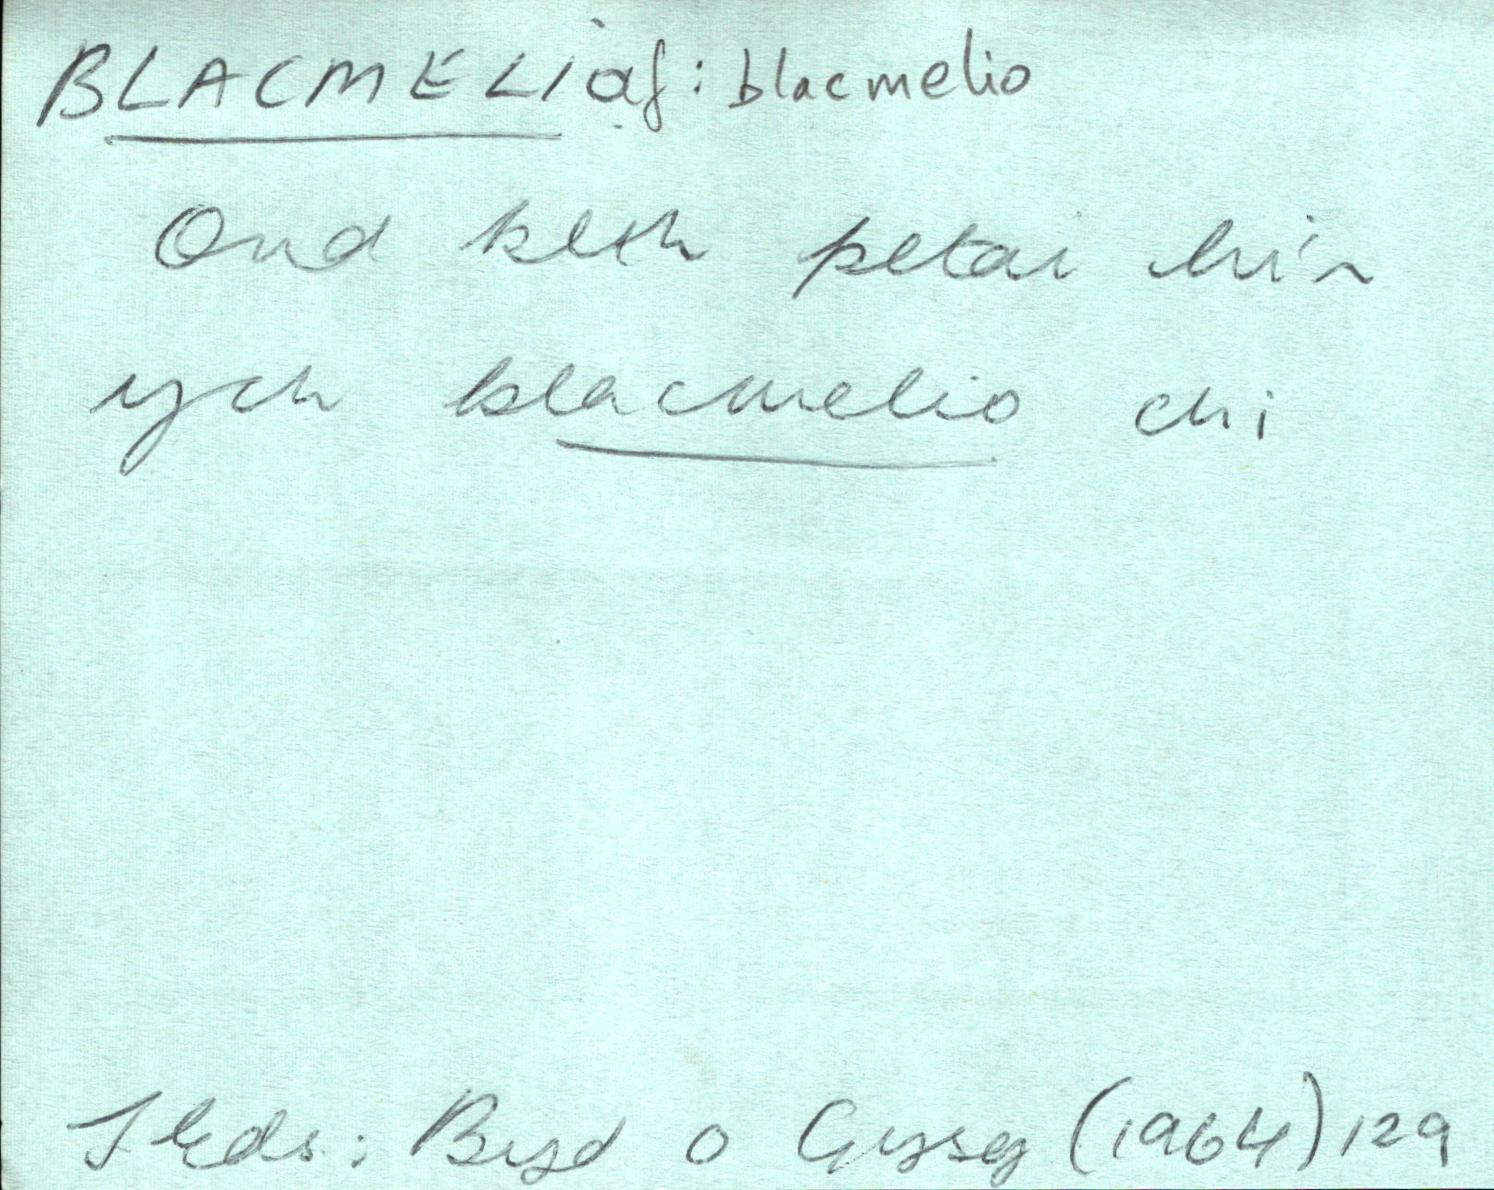 BLACMELIaf: blacmelio
Ond beth petai hi'n
ych blacmelio chi
Byd o Gysgod (1964) 129